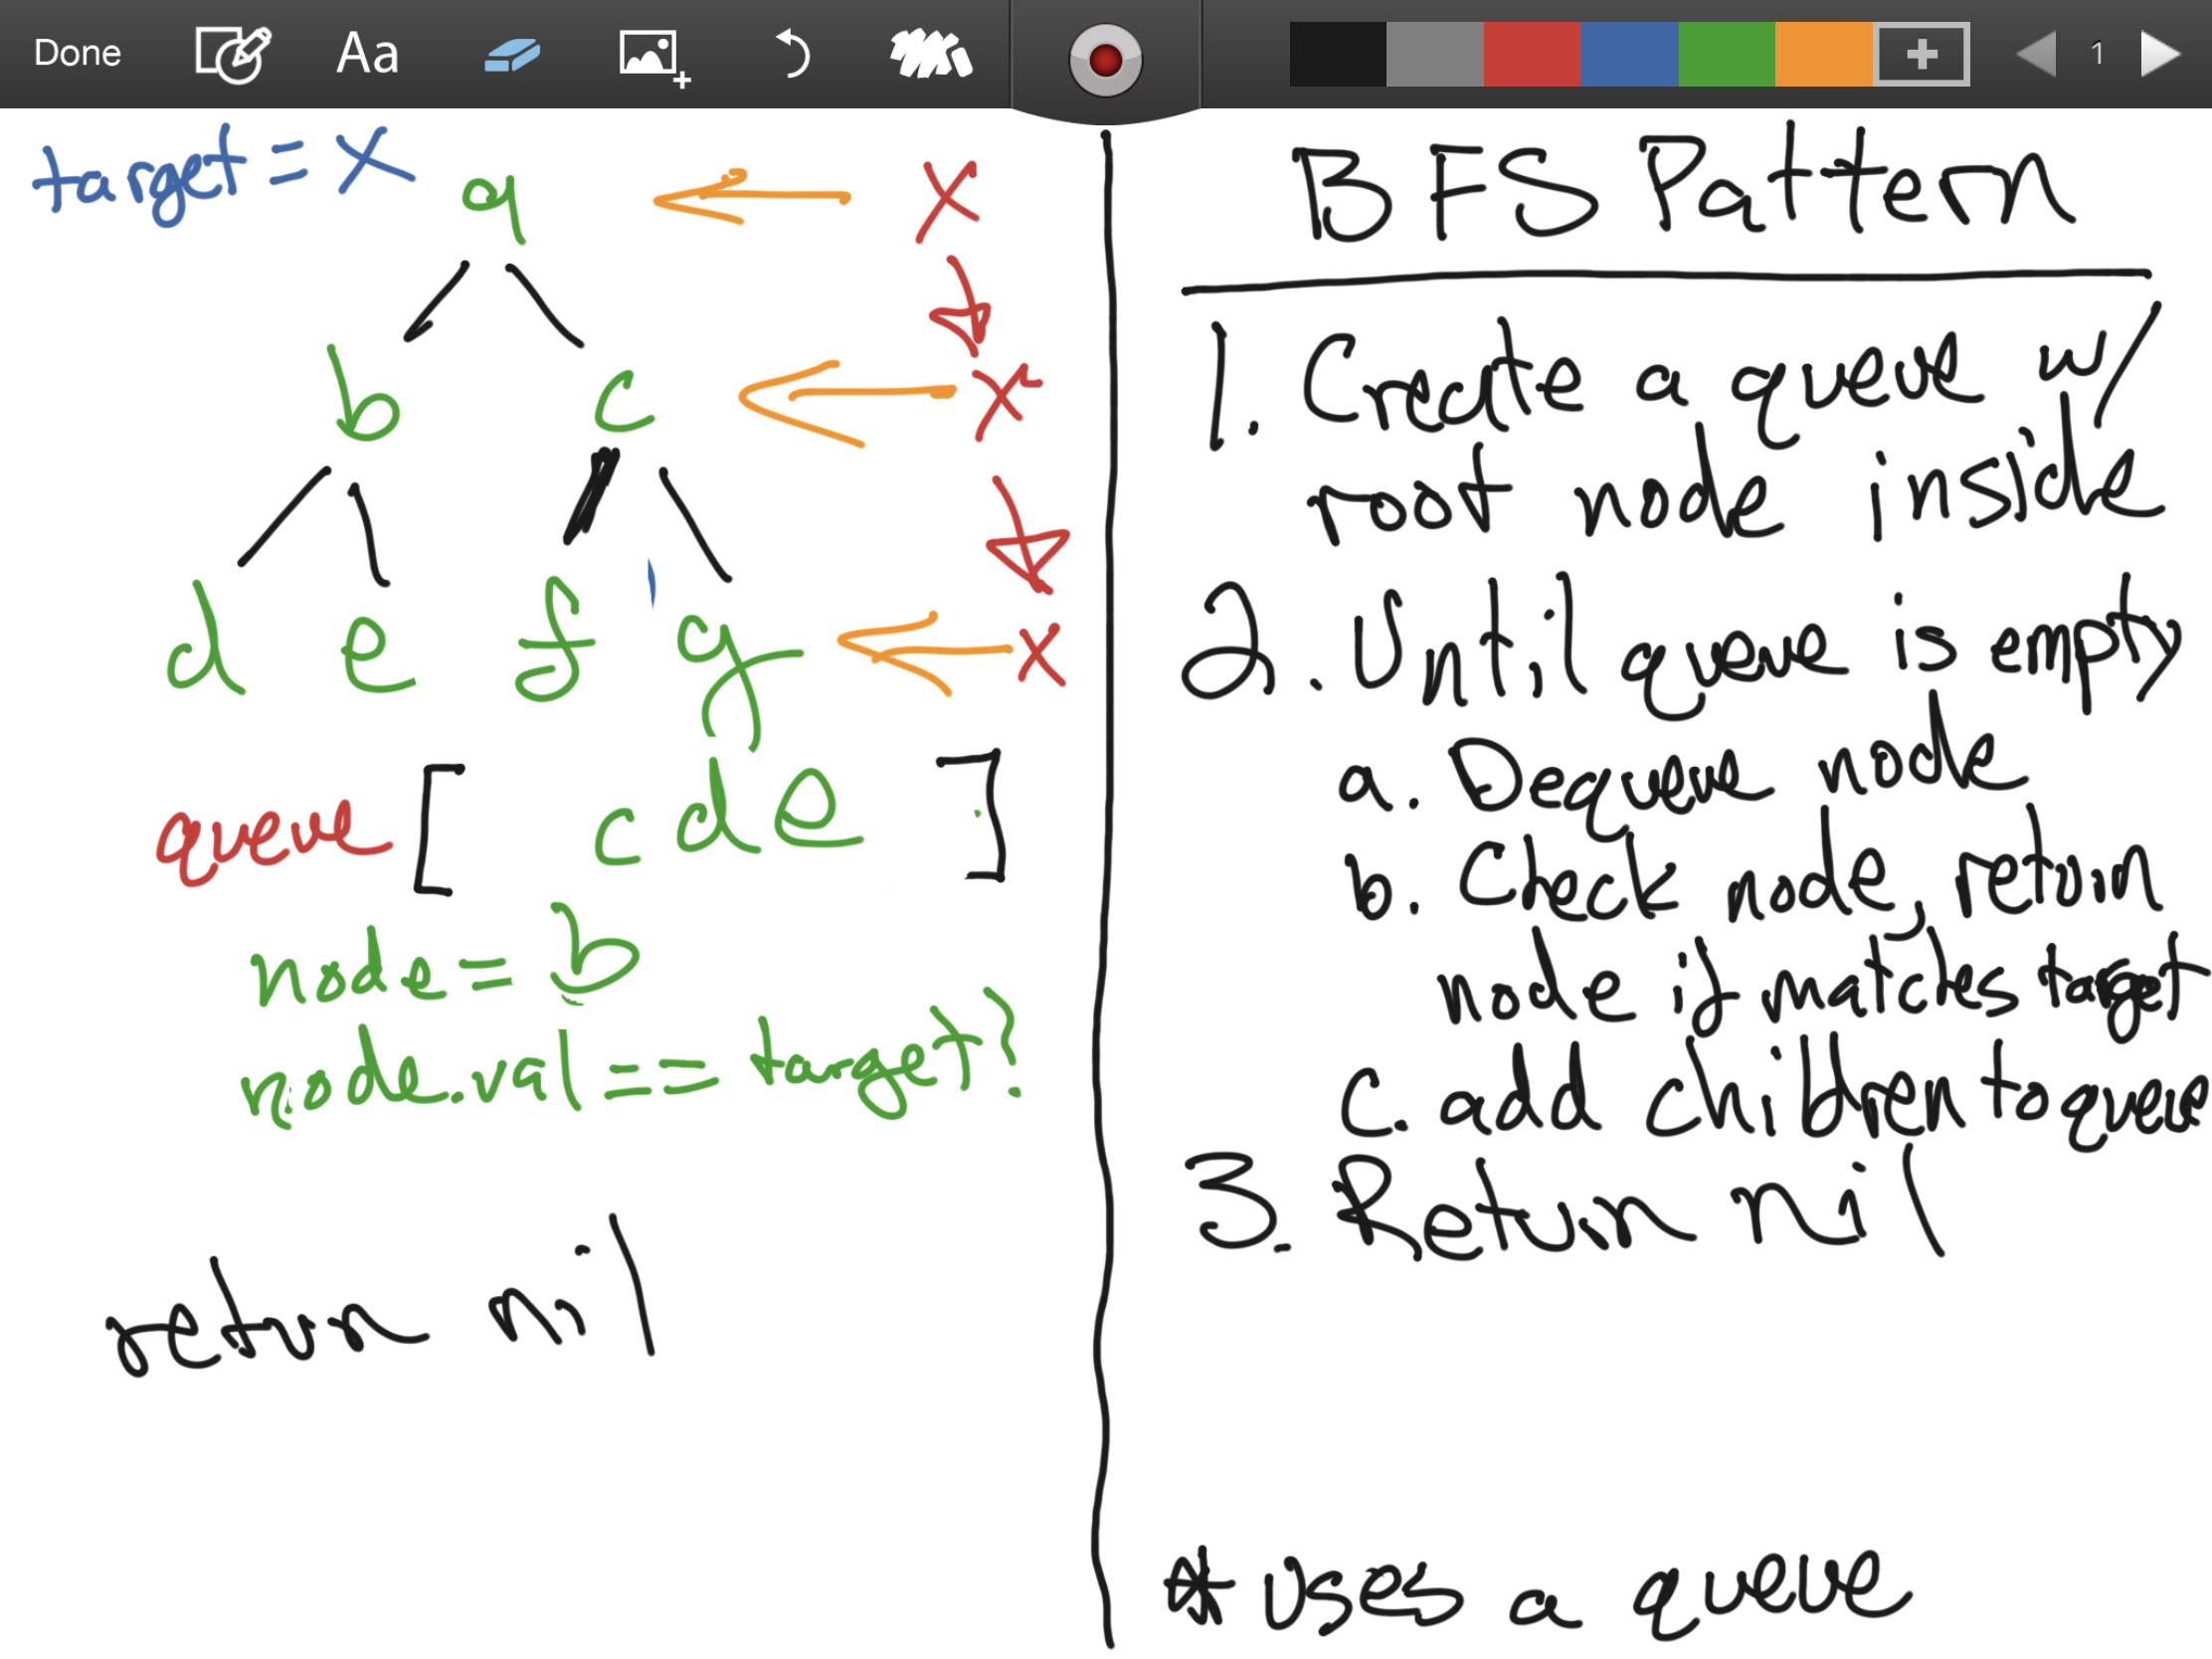 Done Aa 1
target = x
a x
b c x
d e f g x
queue [ c d e ]
node = b
node.val == target?
return nil
BFS Pattern
1. Create a queue w/
root node inside
2. Until queue is empty
a. Dequeue node
b. Check node, return
node if matches target
c. add children to queue
3. Return nil
* uses a queue